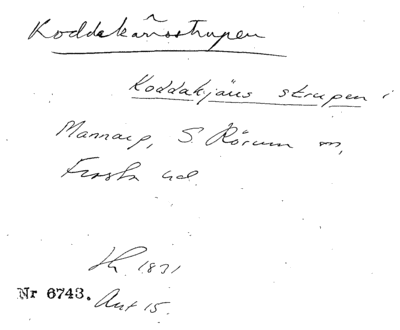 Koddakånsstrupen
Koddakjäns strupen i
Mannarp, S. Rörum sn,
Frosta hd.
Hr. 1831
Nr 6743. Avt 15.